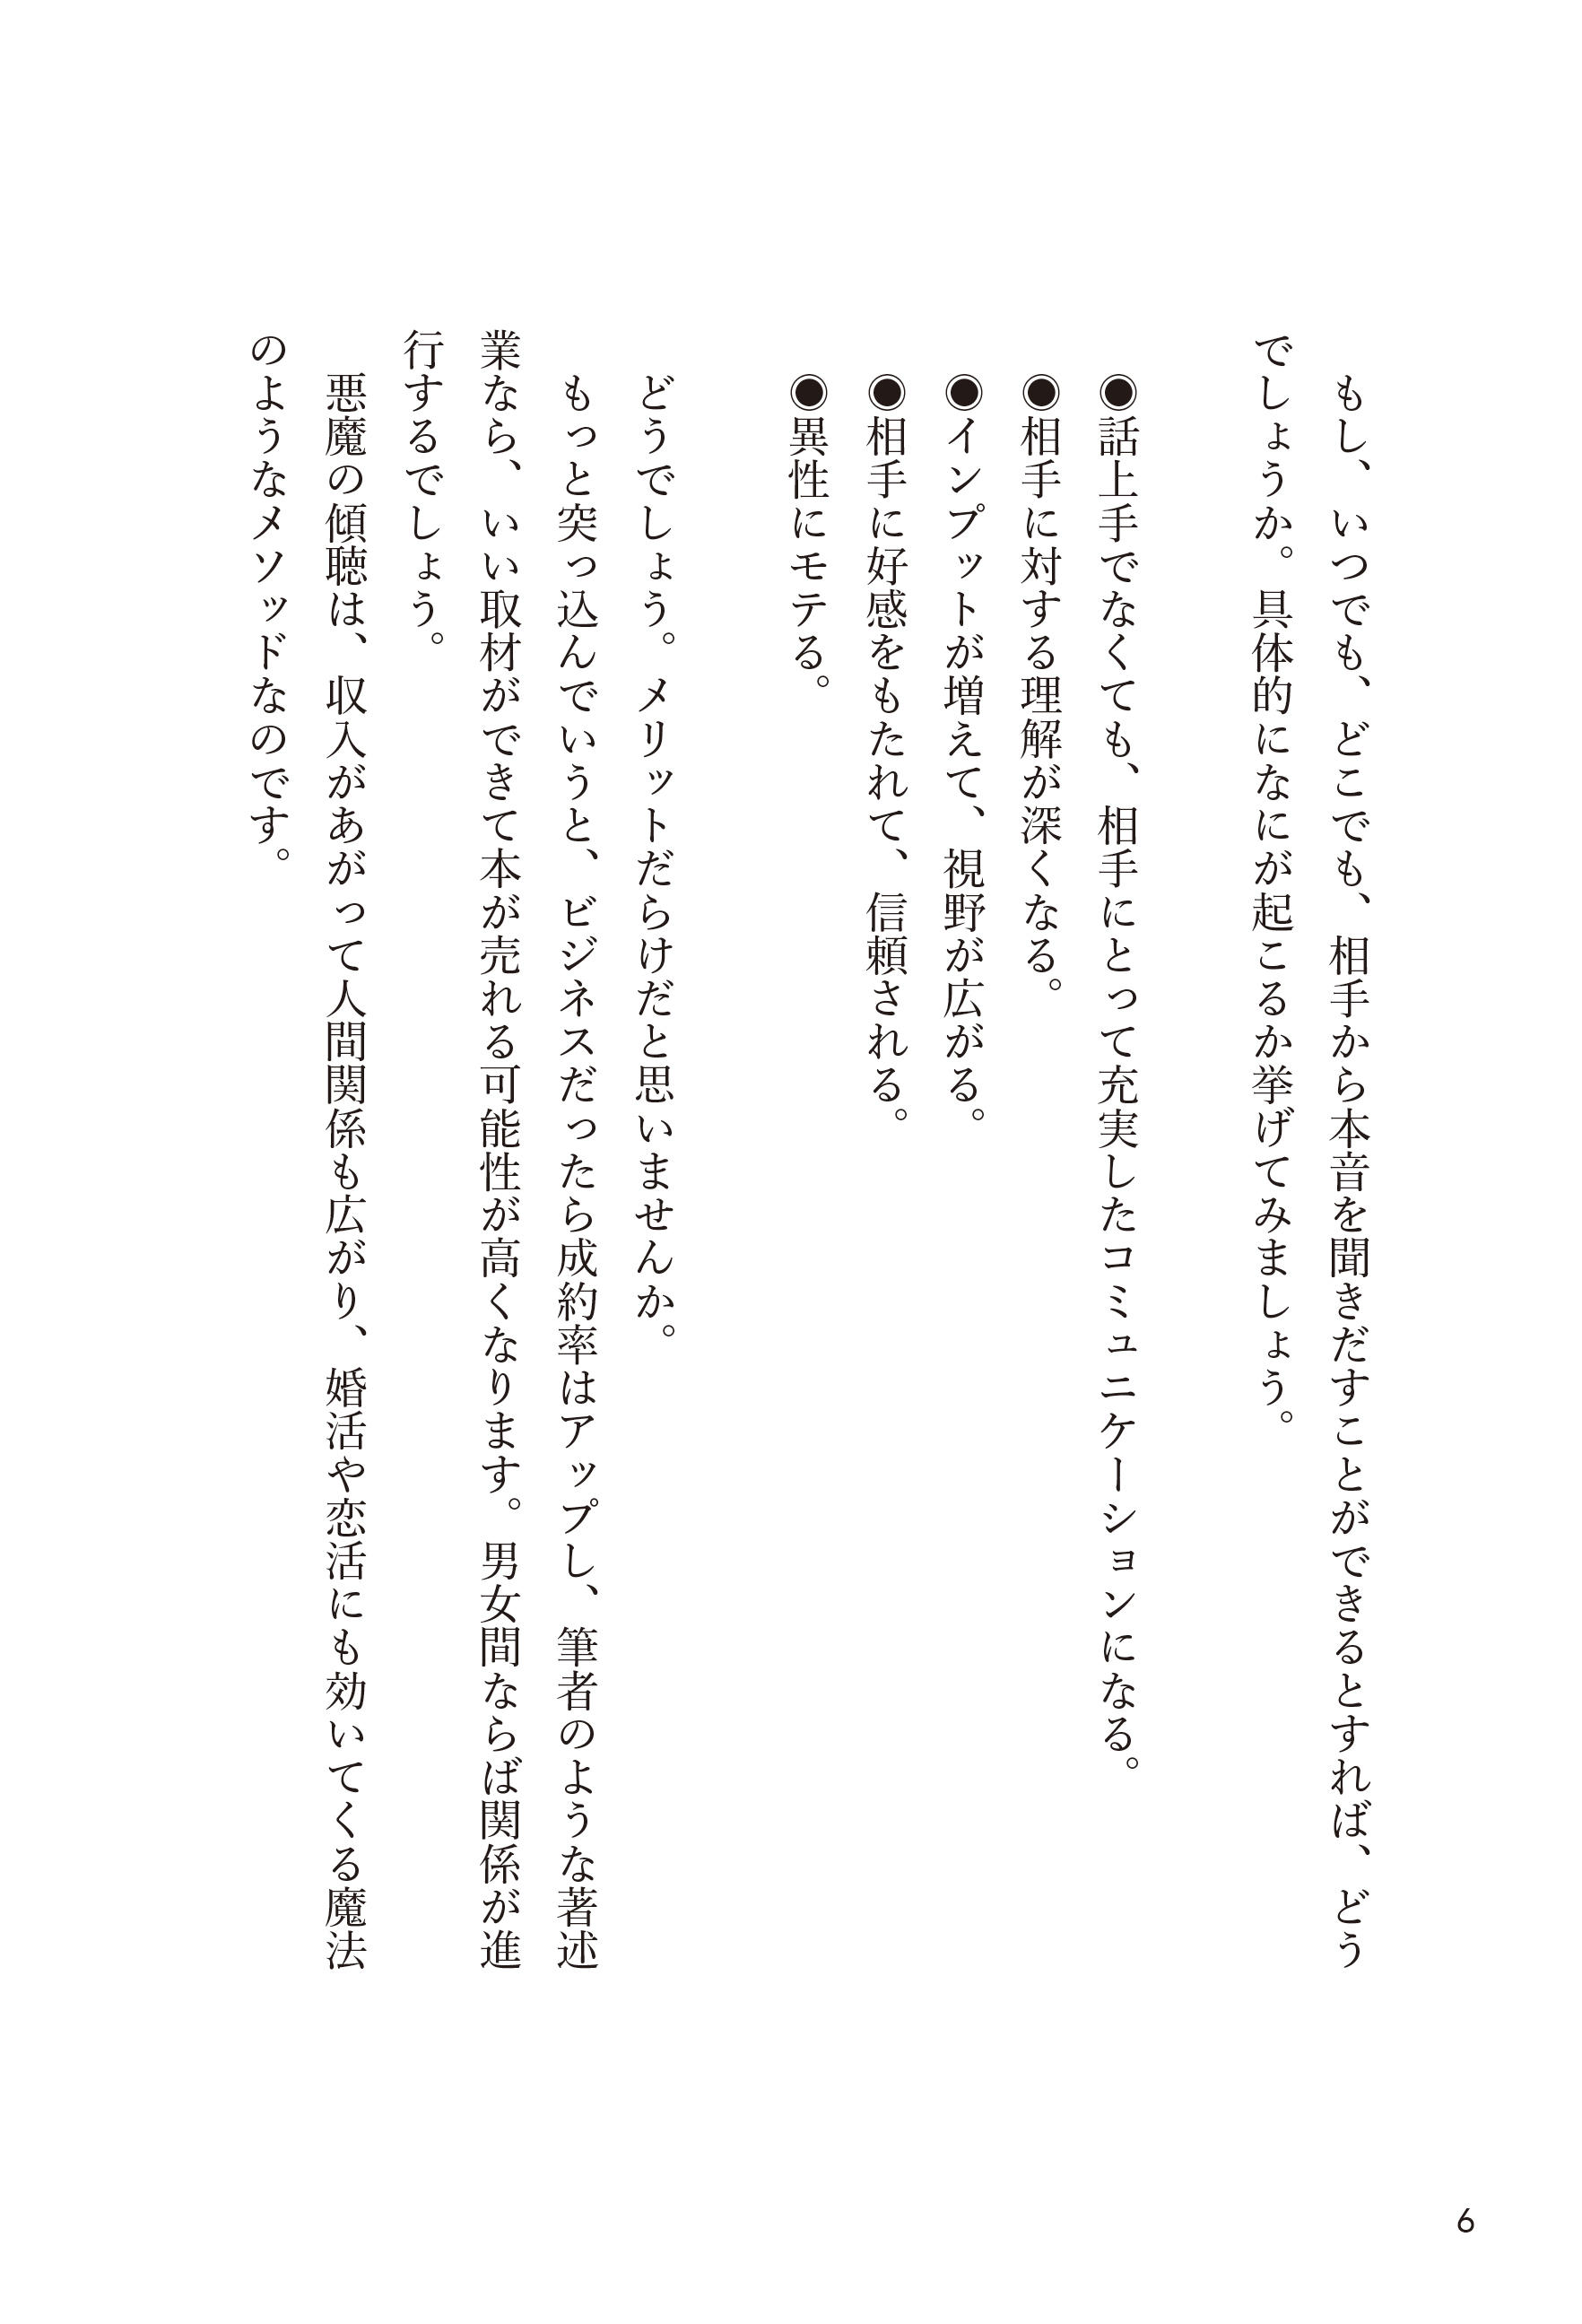 もし、いつでも、どこでも、相手から本音を聞きだすことができるとすれば、どう
でしょうか。具体的になにが起こるか挙げてみましょう。
◉話上手でなくても、相手にとって充実したコミュニケーションになる。
◉相手に対する理解が深くなる。
◉インプットが増えて、視野が広がる。
◉相手に好感をもたれて、信頼される。
◉異性にモテる。
　どうでしょう。メリットだらけだと思いませんか。
　もっと突っ込んでいうと、ビジネスだったら成約率はアップし、筆者のような著述
業なら、いい取材ができて本が売れる可能性が高くなります。男女間ならば関係が進
行するでしょう。
　悪魔の傾聴は、収入があがって人間関係も広がり、婚活や恋活にも効いてくる魔法
のようなメソッドなのです。
6